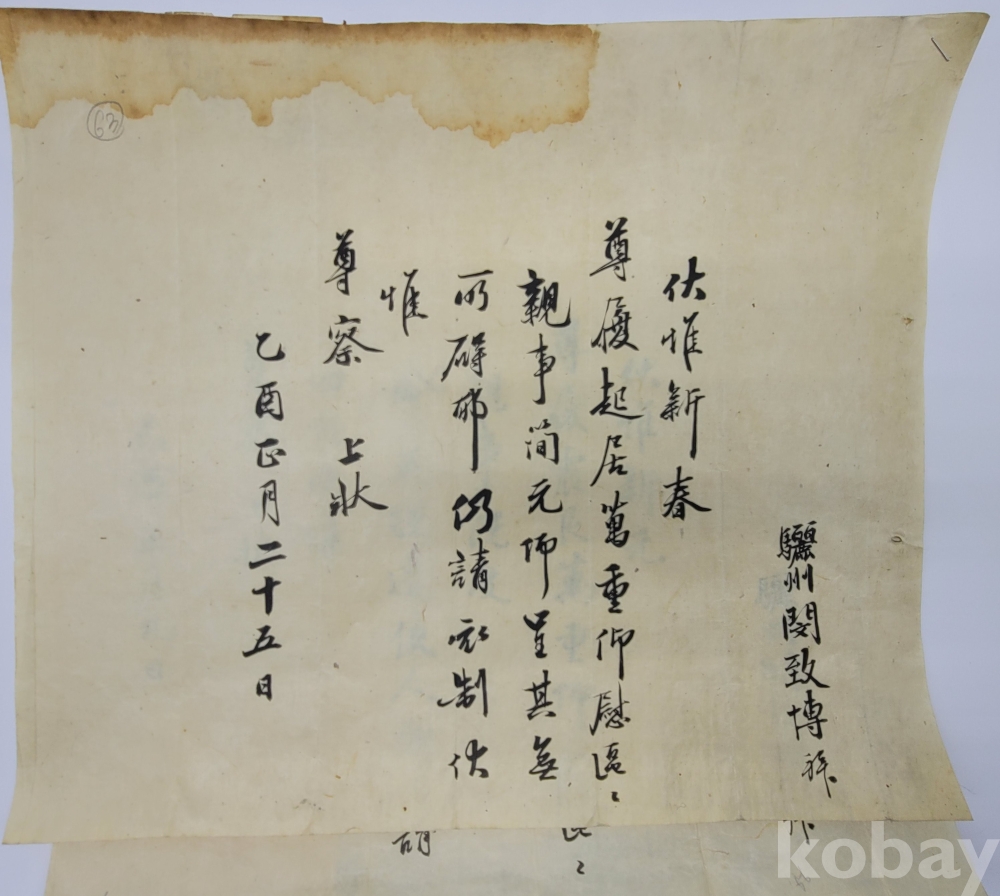 驪州閔致博拜
伏惟新春
尊履起居萬重仰慰區〻
親事簡元帋呈其無
所礙耶仍請衣制伏
惟
尊察 上狀
乙酉正月二十五日
63
胡
kobay